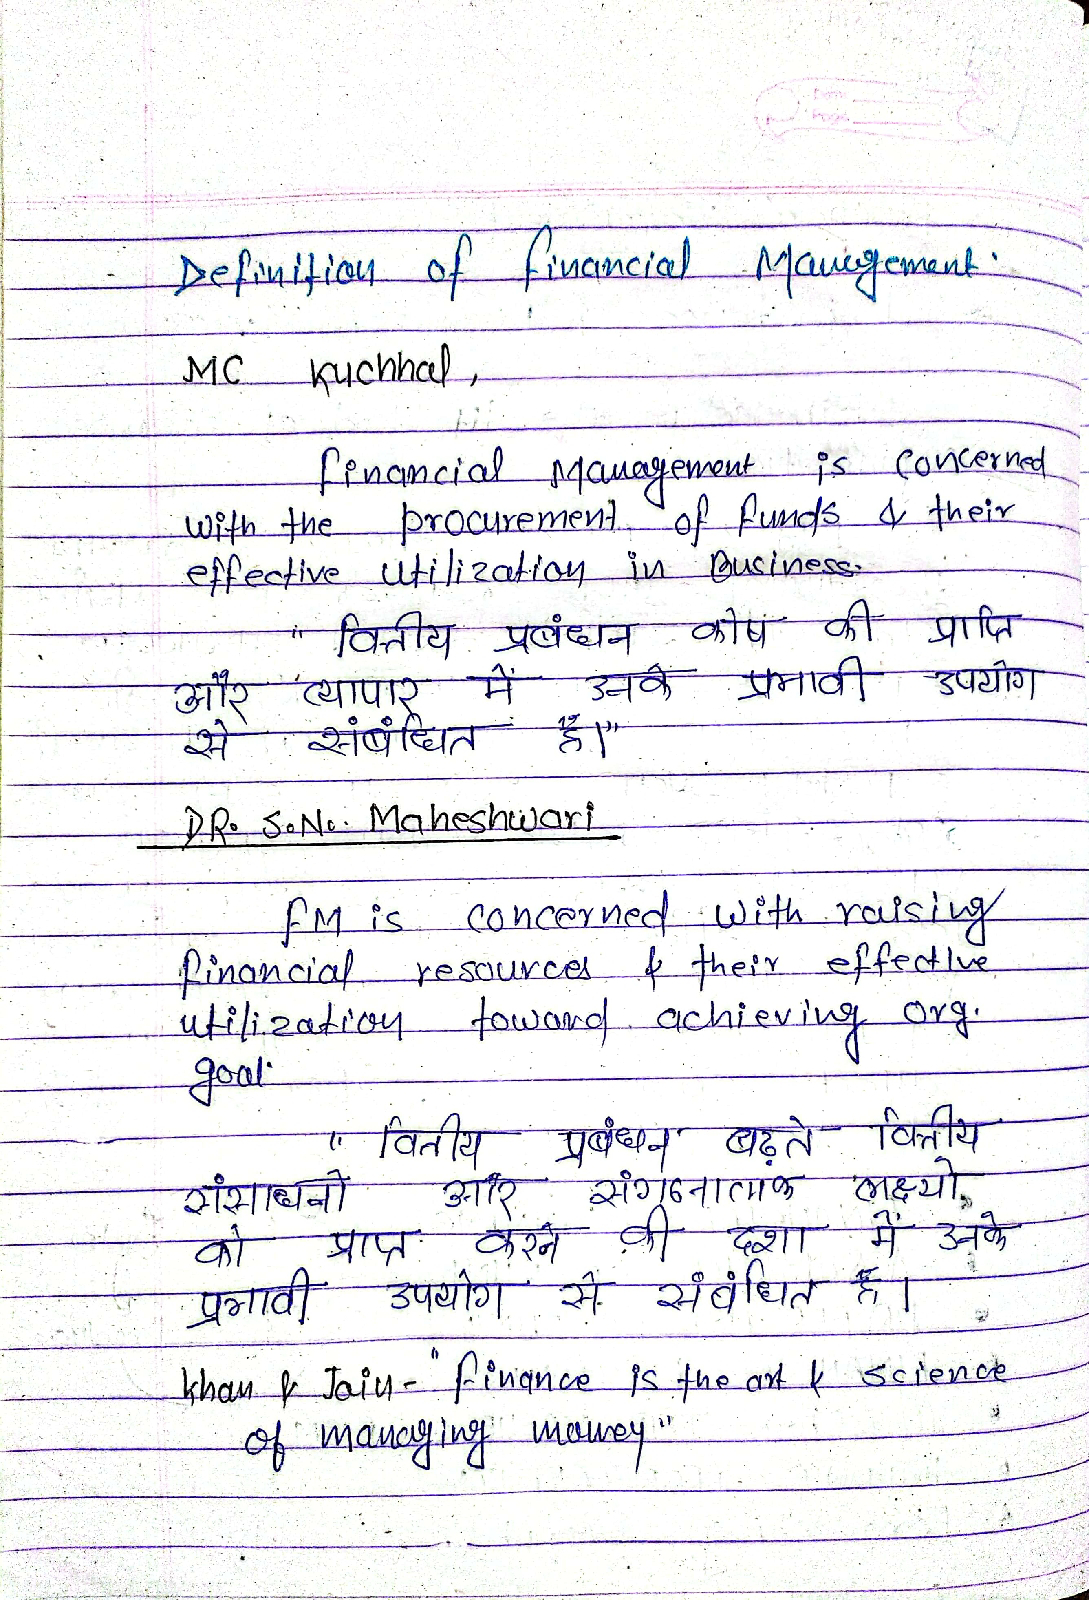 Date
Page
Definition of financial Management.
MC Kuchhal,
financial Management is concerned
with the procurement of funds & their
effective utilization in Business.
"वित्तीय प्रबंधन कोष की प्राप्ति
और व्यापार में उनके प्रभावी उपयोग
से संबंधित है।"
DR. S.N. Maheshwari
FM is concerned with raising
financial resources & their effective
utilization toward achieving org.
goal.
"वित्तीय प्रबंधन बढ़ते वित्तीय
संसाधनों और संगठनात्मक लक्ष्यों
को प्राप्त करने की दशा में उनके
प्रभावी उपयोग से संबंधित है।
Khan & Jain - "finance is the art & science
of managing money"